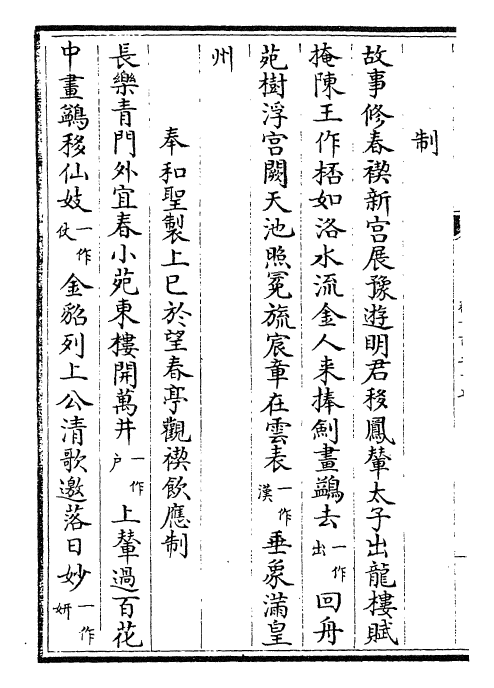 制
故事修春禊新宫展豫遊明君移鳳輦太子出龍樓賦
掩陳王作桮如洛水流金人来捧劍畫鷁去一作出回舟
苑樹浮宫闕天池照冕旒宸章在雲表一作漢垂象滿皇
州
奉和聖製上巳於望春亭觀禊飲應制
長樂青門外宜春小苑東樓開萬井一作户上輦過百花
中畫鷁移仙妓一作仗金貂列上公清歌邀落日妙一作妍